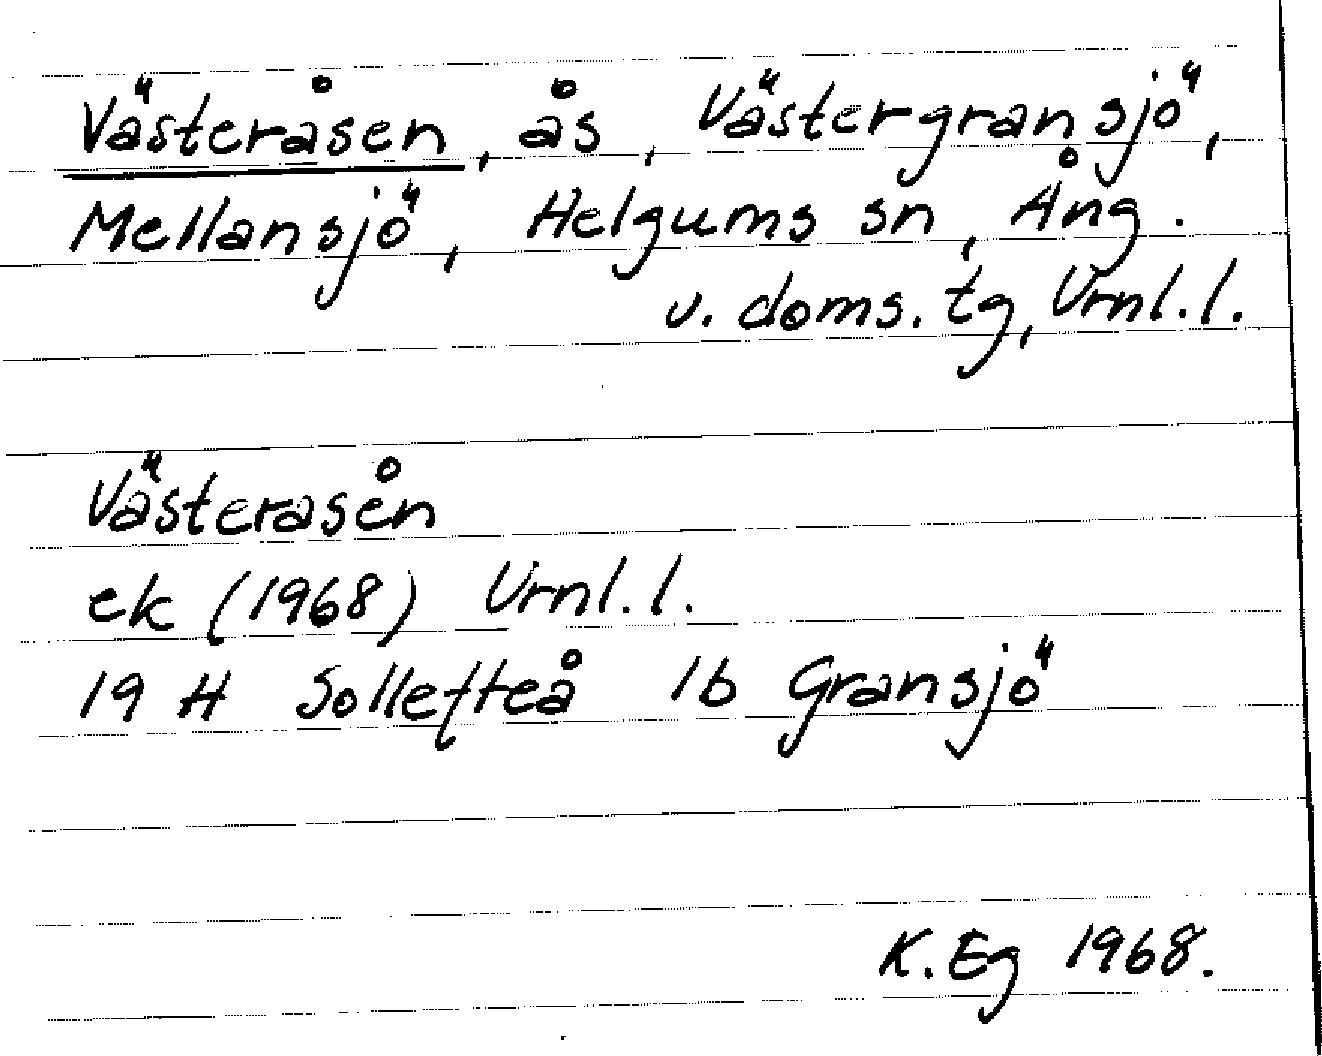 Västeråsen, ås, Västergransjö,
Mellansjö, Helgums sn, Ång.
v. doms. tg, Vrnl.l.
Västeråsen
ek (1968) Vrnl.l.
19 H Sollefteå 1b Gransjö
K. Eg 1968.